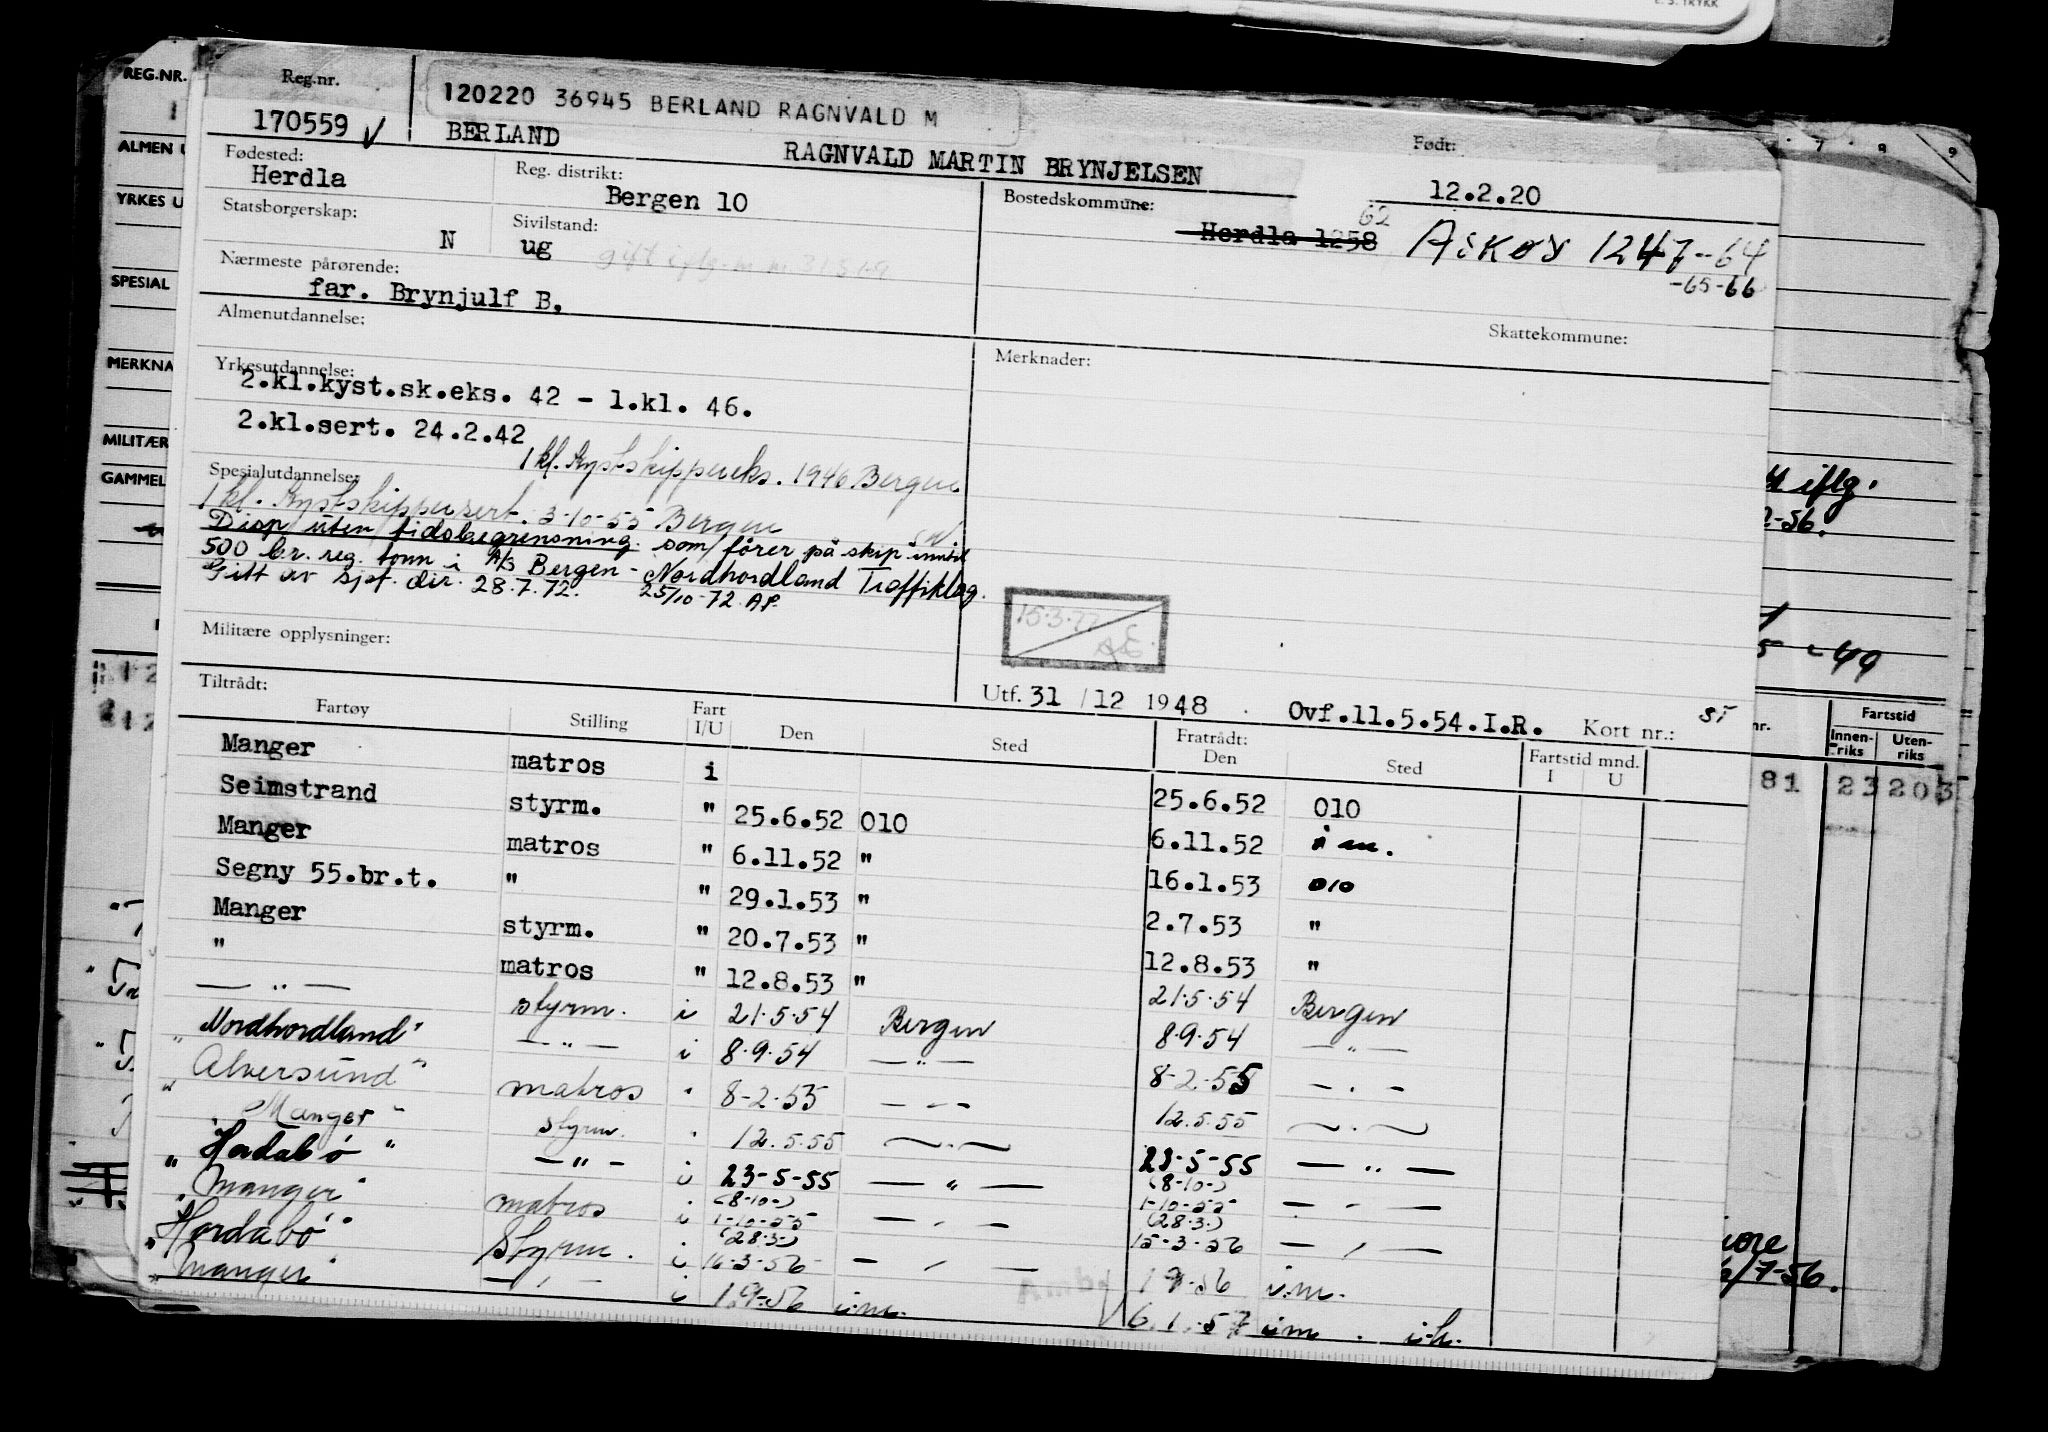 E. S. TRYKK
REG.NR.
Reg.nr.
170559 ✓
120220 36945 BERLAND RAGNVALD M
BERLAND
RAGNVALD MARTIN BRYNJELSEN
Født:
12.2.20
ALMEN U
Fødested:
Herdla
Reg. distrikt:
Bergen 10
Bostedskommune:
Herdla 1258
62
Askøy 1247-64
-65-66
YRKES U
Statsborgerskap:
N
Sivilstand:
ug
gift iflg.
Nærmeste pårørende:
far. Brynjulf B.
SPESIAL
Almenutdannelse:
Skattekommune:
MERKNA
Yrkesutdannelse:
2.kl.kyst.sk.eks. 42 - 1.kl. 46.
2.kl.sert. 24.2.42
1 kl. Kystskippereks. 1946 Bergen
Merknader:
MILITÆR
GAMMEL
Spesialutdannelse:
1 kl. Kystskippersert. 3-10-55 Bergen
Disp. uten tidsbegrensning som fører på skip inntil
500 br. reg. tonn i A/S Bergen - Nordhordland Trafikklag.
Gitt av Sjøf. dir. 28.7.72. 25/10-72 A.P.
iflg.
2-56.
15.3.77
Æ
Militære opplysninger:
5-49
Utf. 31/12 1948 . Ovf.11.5.54.I.R. Kort nr.:
Tiltrådt:
Fartøy Stilling Fart I/U Den Sted Fratrådt: Den Sted Fartstid mnd. I U
nr. Fartstid
Innen-riks Uten-riks
81 23 203
Manger matros i 25.6.52 010
Seimstrand styrm. " 25.6.52 010 6.11.52 i m.
Manger matros " 6.11.52 " 16.1.53 010
Segny 55.br.t. " " 29.1.53 " 2.7.53 "
Manger styrm. " 20.7.53 " 12.8.53 "
" matros " 12.8.53 " 21.5.54 Bergen
— " — styrm. i 21.5.54 Bergen 8.9.54 — " —
"Nordhordland" — " — i 8.9.54 — " — 8-2-55 — " —
"Alversund" matros " 8-2-55 — " — 12.5.55 — " —
"Manger" styrm. " 12.5.55 — " — 23-5-55 — " —
"Hordabø" — " — i 23-5-55 — " — (8-10-) 1-10-55 — " —
"Manger" matros i (8-10-) 1-10-55 — " — (28.3.) 15-3-56 — " —
"Hordabø" Styrm. i (28.3.) 16-3-56 — " — 1 9-56 i.m.
"Manger" — " — i 1.9-56 i.m. 6.1.-57 i m . i.h.
/7-56.